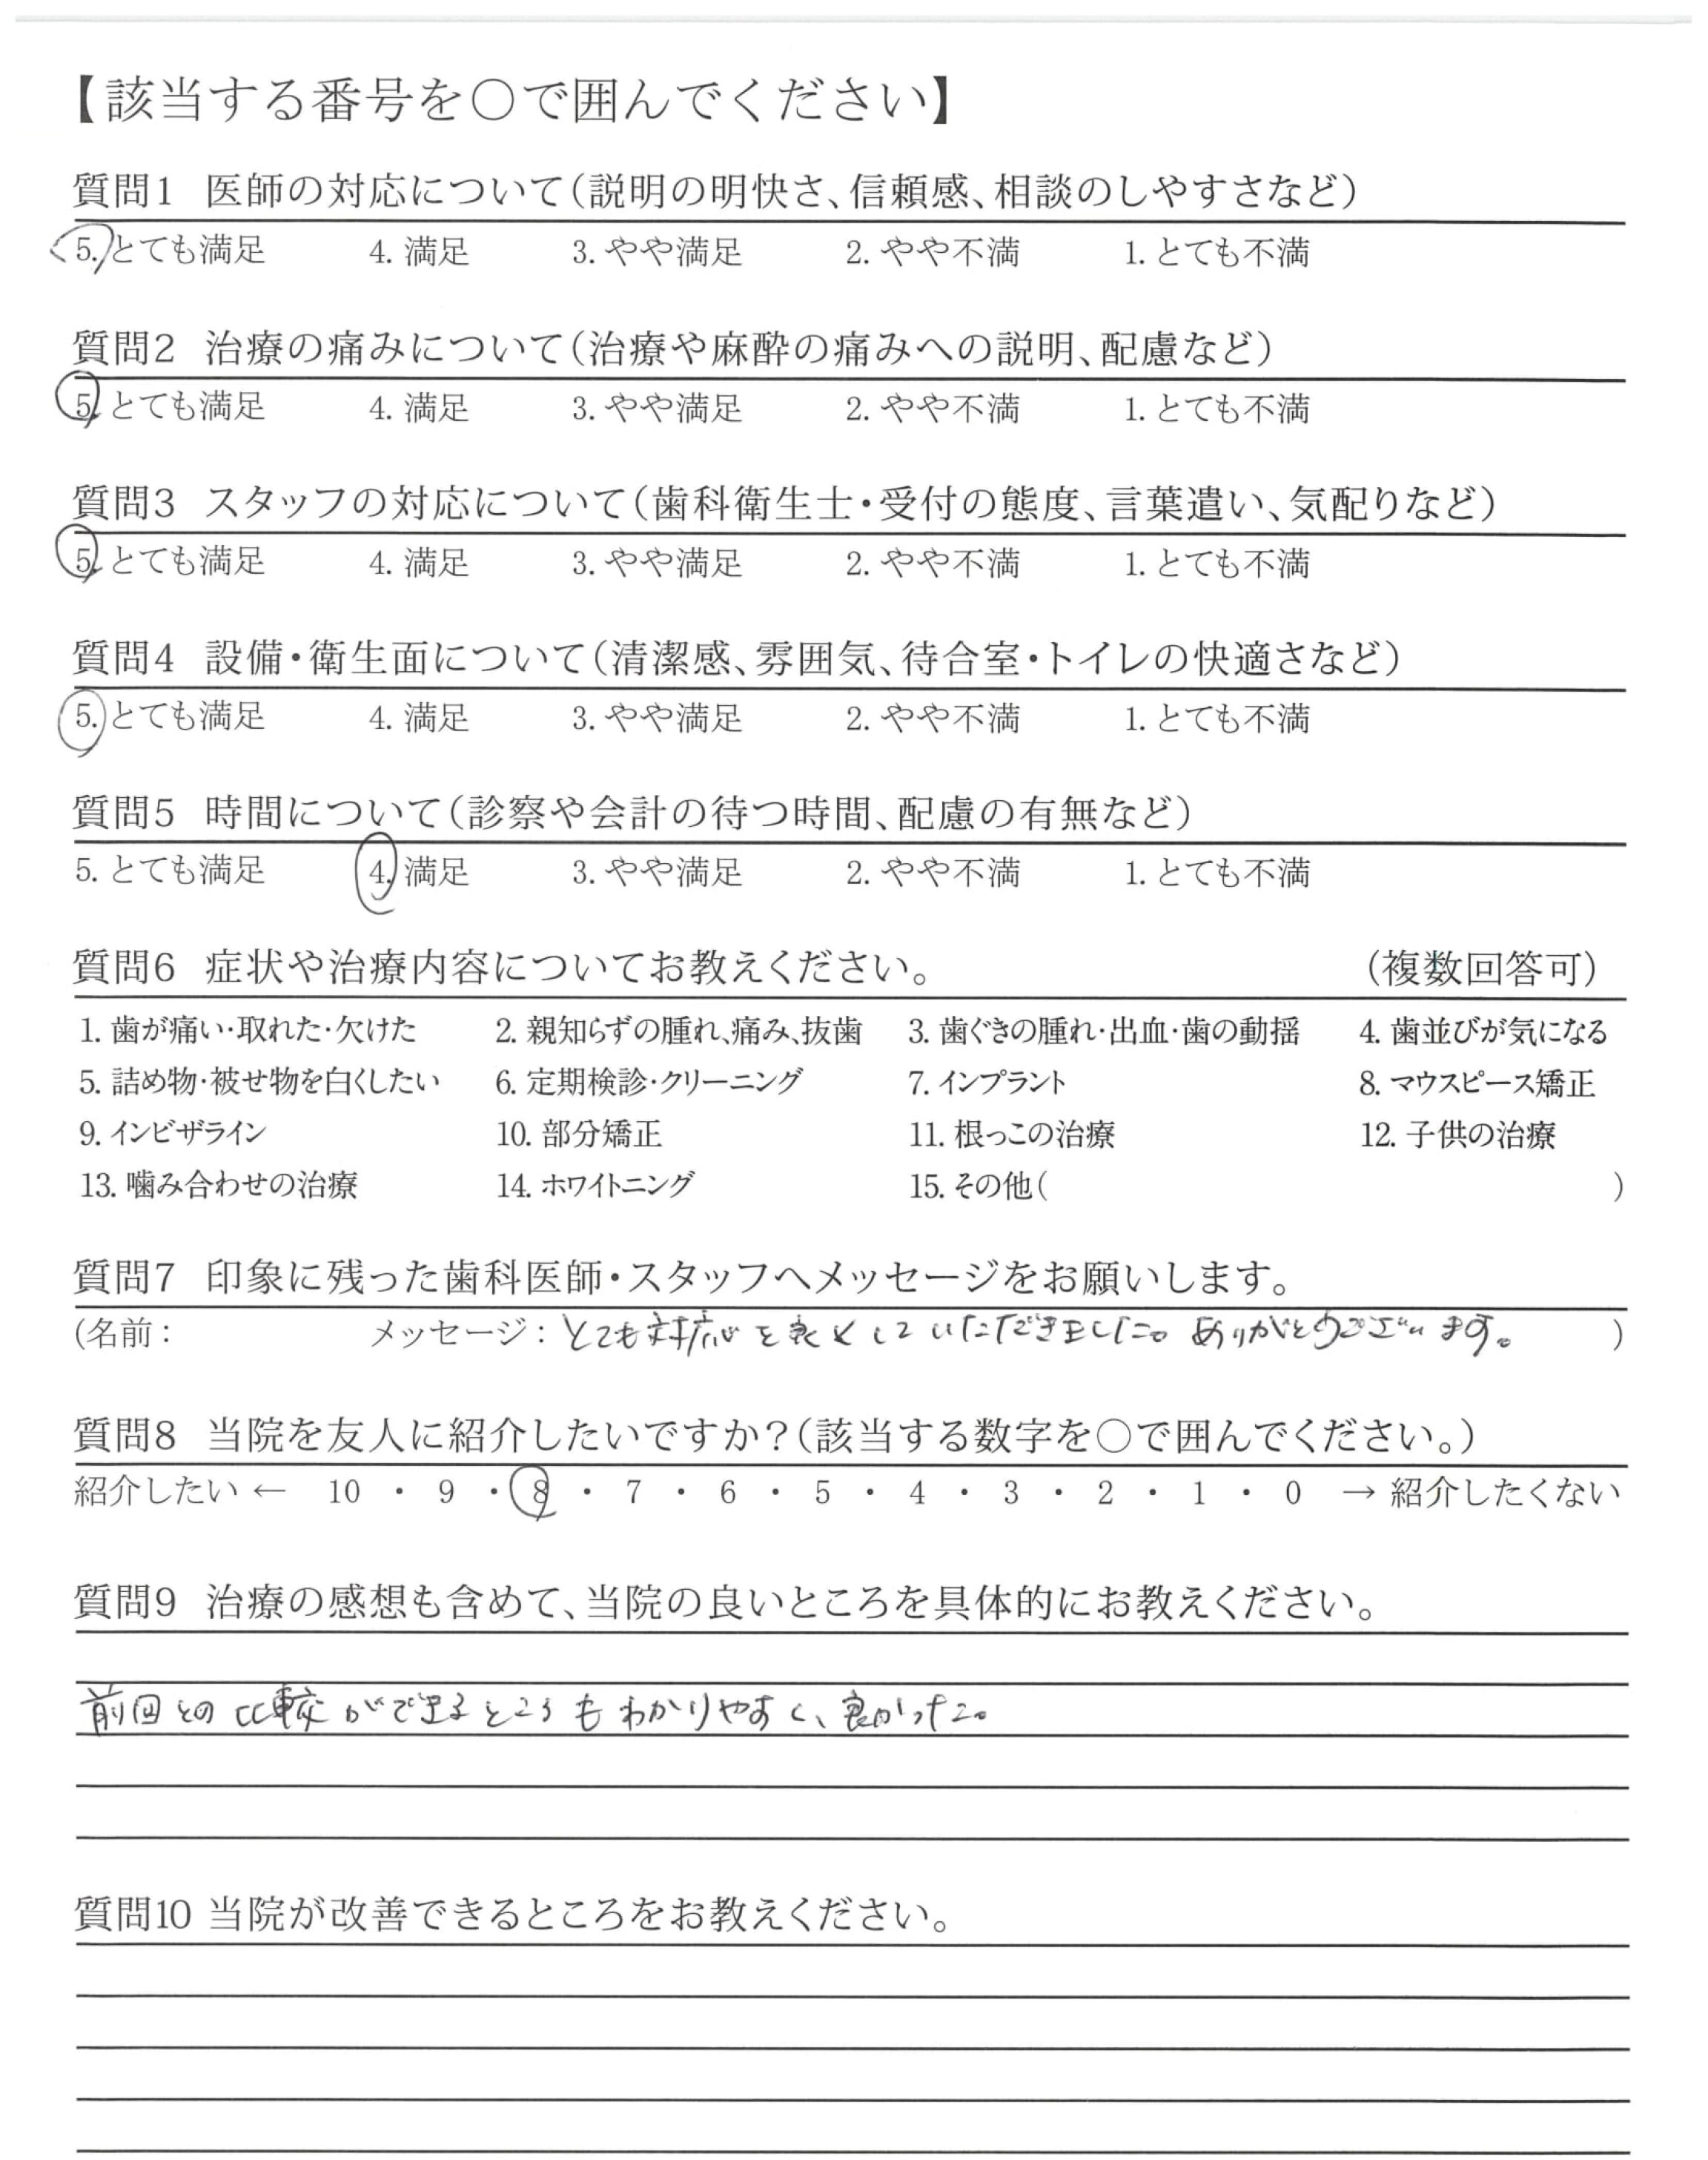 【該当する番号を○で囲んでください】
質問1 医師の対応について(説明の明快さ、信頼感、相談のしやすさなど)
5. とても満足 4. 満足 3. やや満足 2. やや不満 1. とても不満
質問2 治療の痛みについて(治療や麻酔の痛みへの説明、配慮など)
5. とても満足 4. 満足 3. やや満足 2. やや不満 1. とても不満
質問3 スタッフの対応について(歯科衛生士・受付の態度、言葉遣い、気配りなど)
5. とても満足 4. 満足 3. やや満足 2. やや不満 1. とても不満
質問4 設備・衛生面について(清潔感、雰囲気、待合室・トイレの快適さなど)
5. とても満足 4. 満足 3. やや満足 2. やや不満 1. とても不満
質問5 時間について(診察や会計の待つ時間、配慮の有無など)
5. とても満足 4. 満足 3. やや満足 2. やや不満 1. とても不満
質問6 症状や治療内容についてお教えください。 (複数回答可)
1. 歯が痛い・取れた・欠けた 2. 親知らずの腫れ、痛み、抜歯 3. 歯ぐきの腫れ・出血・歯の動揺 4. 歯並びが気になる
5. 詰め物・被せ物を白くしたい 6. 定期検診・クリーニング 7. インプラント 8. マウスピース矯正
9. インビザライン 10. 部分矯正 11. 根っこの治療 12. 子供の治療
13. 噛み合わせの治療 14. ホワイトニング 15. その他( )
質問7 印象に残った歯科医師・スタッフへメッセージをお願いします。
(名前: メッセージ: とても対応を良くしていただきました。ありがとうございます。 )
質問8 当院を友人に紹介したいですか?(該当する数字を○で囲んでください。)
紹介したい ← 10 ・ 9 ・ 8 ・ 7 ・ 6 ・ 5 ・ 4 ・ 3 ・ 2 ・ 1 ・ 0 → 紹介したくない
質問9 治療の感想も含めて、当院の良いところを具体的にお教えください。
前回との比較ができるところもわかりやすく、良かった。
質問10 当院が改善できるところをお教えください。